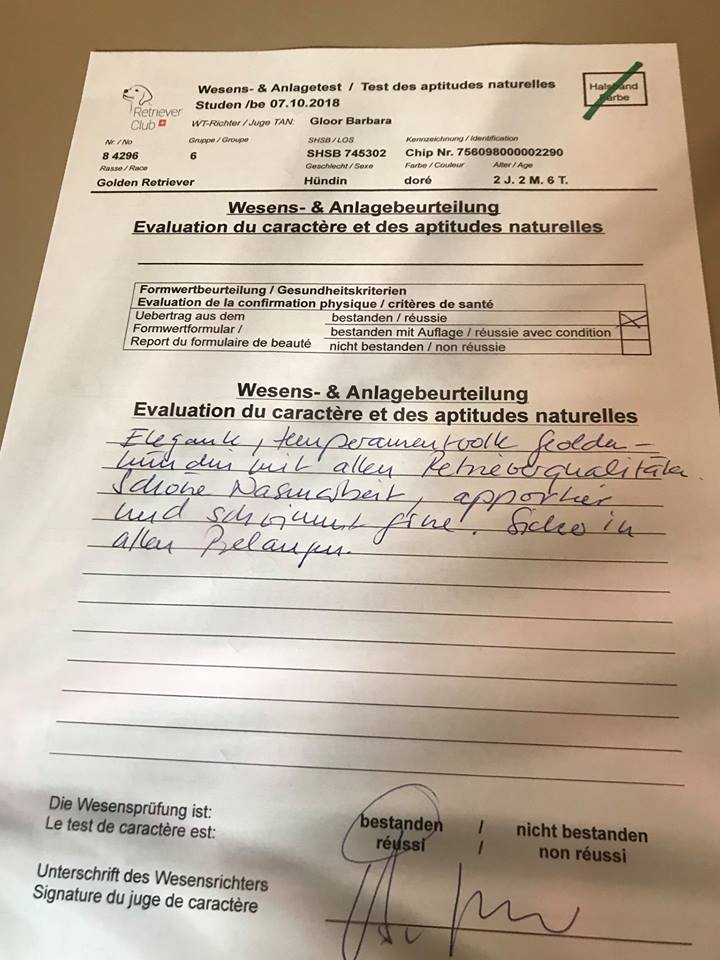 Retriever
Club
Wesens- & Anlagetest / Test des aptitudes naturelles
Studen /be 07.10.2018
WT-Richter / Juge TAN: Gloor Barbara
Halsband
Farbe
Nr. / No Gruppe / Groupe SHSB / LOS Kennzeichnung / Identification
8 4296 6 SHSB 745302 Chip Nr. 756098000002290
Rasse / Race Geschlecht / Sexe Farbe / Couleur Alter / Age
Golden Retriever Hündin doré 2 J. 2 M. 6 T.
Wesens- & Anlagebeurteilung
Evaluation du caractère et des aptitudes naturelles
Formwertbeurteilung / Gesundheitskriterien
Evaluation de la confirmation physique / critères de santé
Uebertrag aus dem bestanden / réussie
Formwertformular / bestanden mit Auflage / réussie avec condition
Report du formulaire de beauté nicht bestanden / non réussie
Wesens- & Anlagebeurteilung
Evaluation du caractère et des aptitudes naturelles
Elegante, temperamentvolle Golden-
hündin mit allen Retrieverqualitäten.
Schöne Nasenarbeit, apportier
und schwimmt gerne. Sicher in
allen Belangen.
Die Wesensprüfung ist: bestanden / nicht bestanden
Le test de caractère est: réussi / non réussi
Unterschrift des Wesensrichters
Signature du juge de caractère